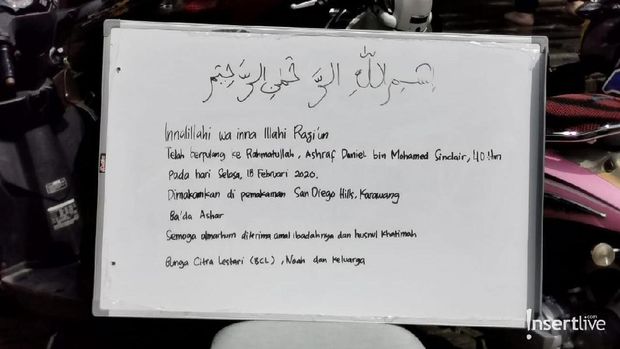 بسم الله الرحمن الرحيم
Innalillahi wa inna Illahi Razi'un
Telah berpulang ke Rahmatullah, Ashraf Daniel bin Mohamed Sinclair, 40 thn
Pada hari Selasa, 18 Februari 2020.
Dimakamkan di pemakaman San Diego Hills, Karawang
Ba'da Ashar
Semoga almarhum diterima amal ibadahnya dan husnul khatimah
Bunga Citra Lestari (BCL), Noah dan keluarga
insertlive.com